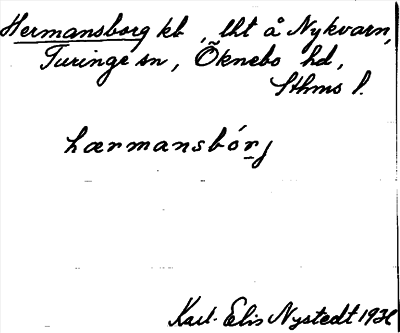 Hermansborg kb, tht å Nykvarn,
Turinge sn, Öknebo hd,
Sthms l.
hærmansbórj
Karl-Elis Nystedt